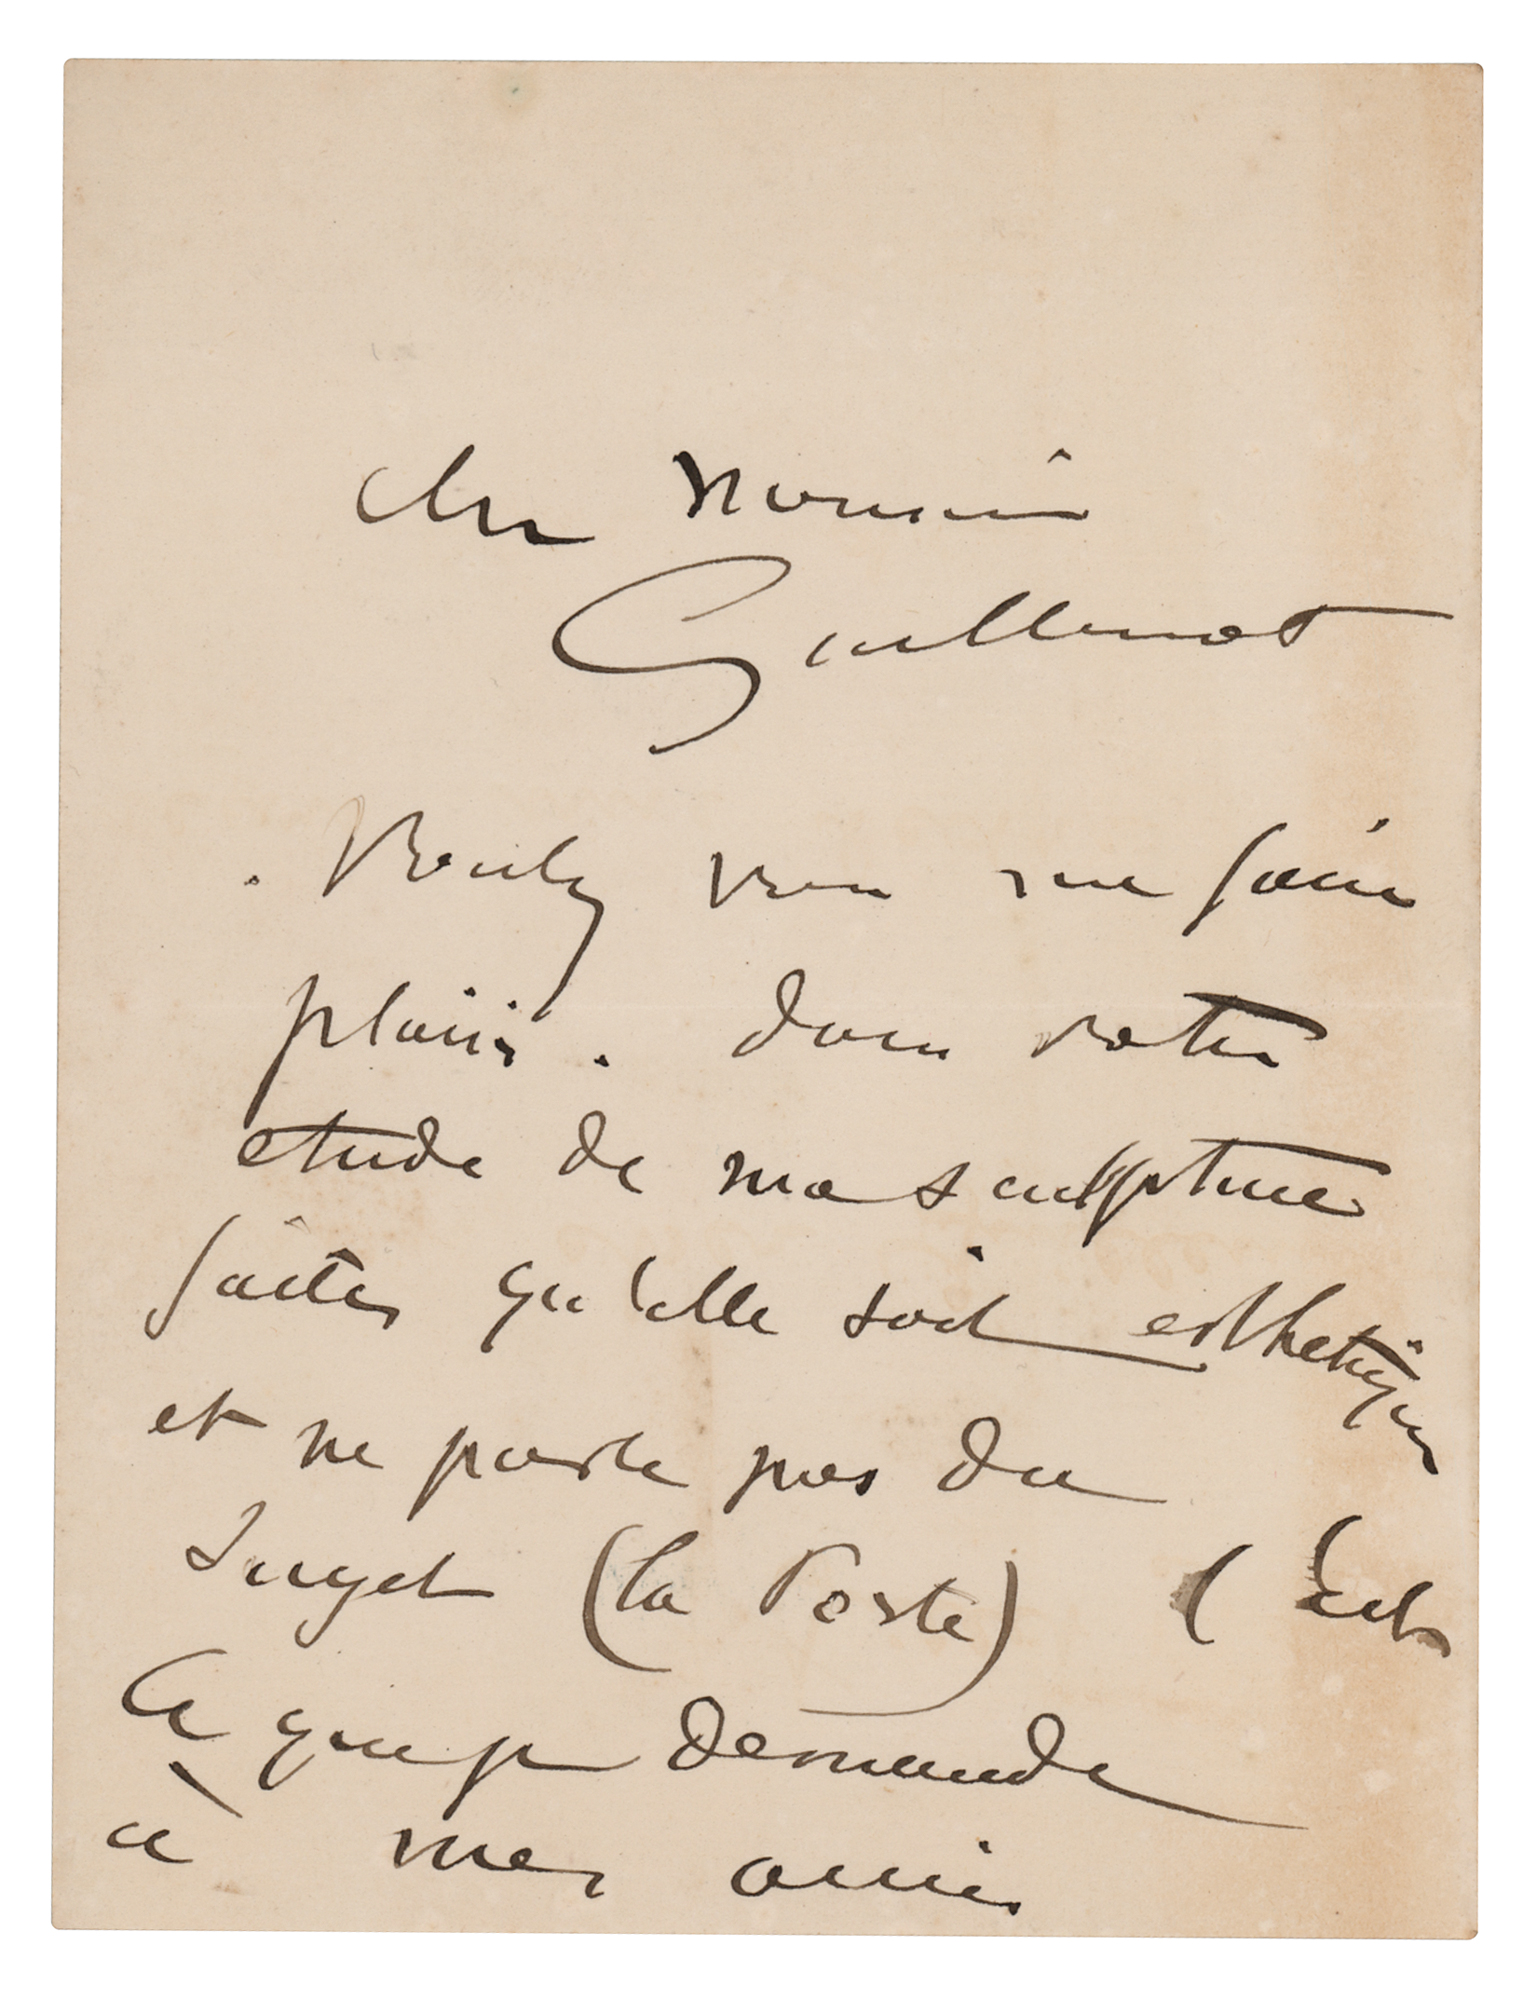 Cher Monsieur
Guillemot
. Voulez vous me faire
plaisir. dans votre
etude de ma sculpture
faites qu'elle soit esthetique
et ne parle pas du
sujet (la Porte) (c'est
ce que je demande
à mes amis